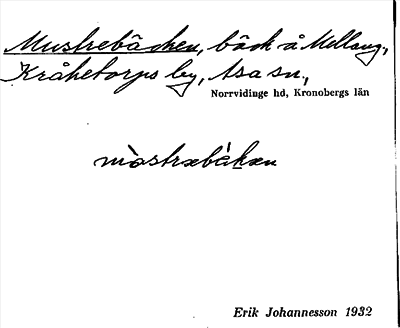 Mustrebäcken, bäck å Mellang,
Kråketorps by, Asa sn,
Norrvidinge hd, Kronobergs län
mòstrabäkan
Erik Johannesson 1932